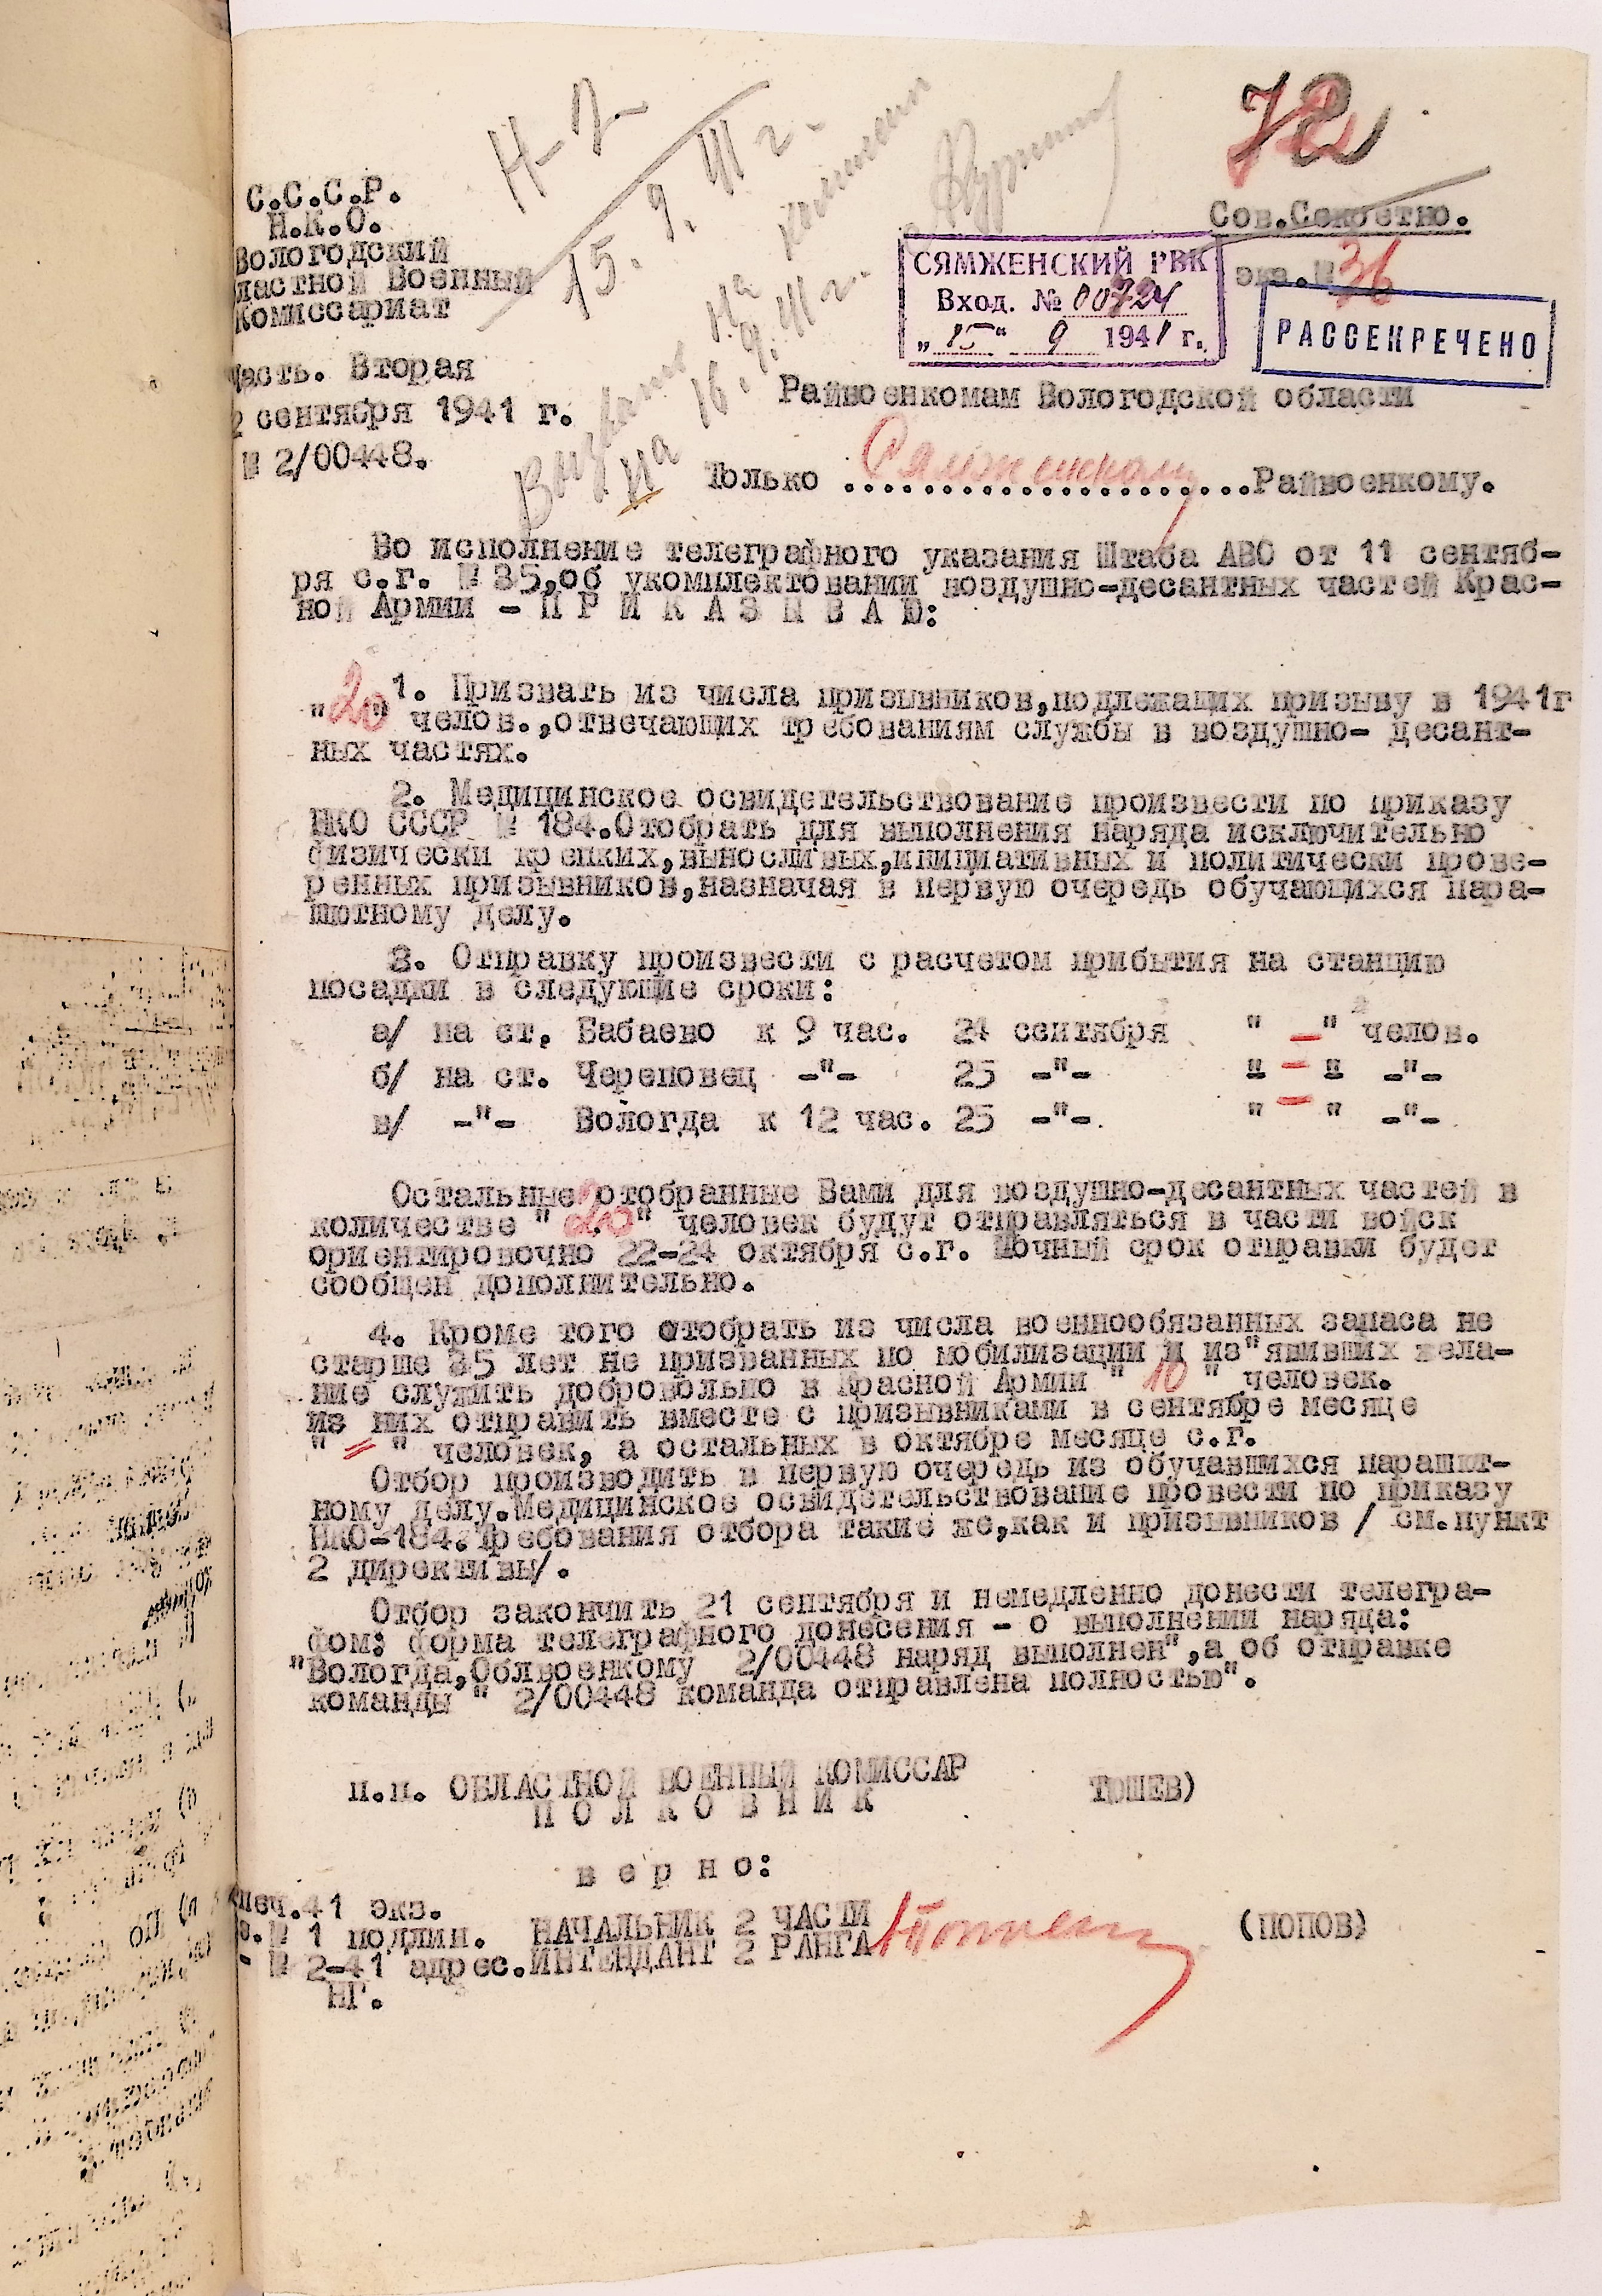 Н-2
15. 9. 41 г.
72
С.С.С.Р.
Н.К.О.
Вологодский
ластной Военный
Комиссариат
Сов.Секретно.
экз.№ 36
СЯМЖЕНСКИЙ РВК
Вход. № 00724
„15“ 9 1941 г.
РАССЕКРЕЧЕНО
Вызвать на
на 16.9.41 г.
часть. Вторая
2 сентября 1941 г.
№ 2/00448.
Райвоенкомам Вологодской области
Только Сямженскому Райвоенкому.
Во исполнение телеграфного указания Штаба АВО от 11 сентяб-
ря с.г. № 35,об укомплектовании воздушно-десантных частей Крас-
ной Армии - П Р И К А З Ы В А Ю:
1. Призвать из числа призывников,подлежащих призыву в 1941г
"20" челов.,отвечающих требованиям службы в воздушно- десант-
ных частях.
2. Медицинское освидетельствование произвести по приказу
НКО СССР № 184.Отобрать для выполнения наряда исключительно
физически крепких,выносливых,инициативных и политически прове-
ренных призывников,назначая в первую очередь обучающихся пара-
шютному делу.
3. Отправку произвести с расчетом прибытия на станцию
посадки в следующие сроки:
а/ на ст. Бабаево к 9 час. 24 сентября " - " челов.
б/ на ст. Череповец -"- 25 -"- " - " -"-
в/ -"- Вологда к 12 час. 25 -"-. " - " -"-.
Остальные отобранные Вами для воздушно-десантных частей в
количестве "20" человек будут отправляться в части войск
ориентировочно 22-24 октября с.г. Точный срок отправки будет
сообщен дополнительно.
4. Кроме того отобрать из числа военнообязанных запаса не
старше 35 лет не призванных по мобилизации и из"явивших жела-
ние служить добровольно в Красной Армии " 10 " человек.
из них отправить вместе с призывниками в сентябре месяце
" - " человек, а остальных в октябре месяце с.г.
Отбор производить в первую очередь из обучавшихся парашют-
ному делу.Медицинское освидетельствование провести по приказу
НКО-184.Требования отбора такие же,как и призывников / см.пункт
2 директивы/.
Отбор закончить 21 сентября и немедленно донести телегра-
фом; форма телеграфного донесения - о выполнении наряда:
"Вологда,Облвоенкому 2/00448 наряд выполнен",а об отправке
команды " 2/00448 команда отправлена полностью".
п.п. ОБЛАСТНОЙ ВОЕННЫЙ КОМИССАР
П О Л К О В Н И К ТОШЕВ)
в е р н о:
печ.41 экз.
з.№ 1 подлин. НАЧАЛЬНИК 2 ЧАСТИ (ПОПОВ)
- № 2-41 адрес. ИНТЕНДАНТ 2 РАНГА
НГ.